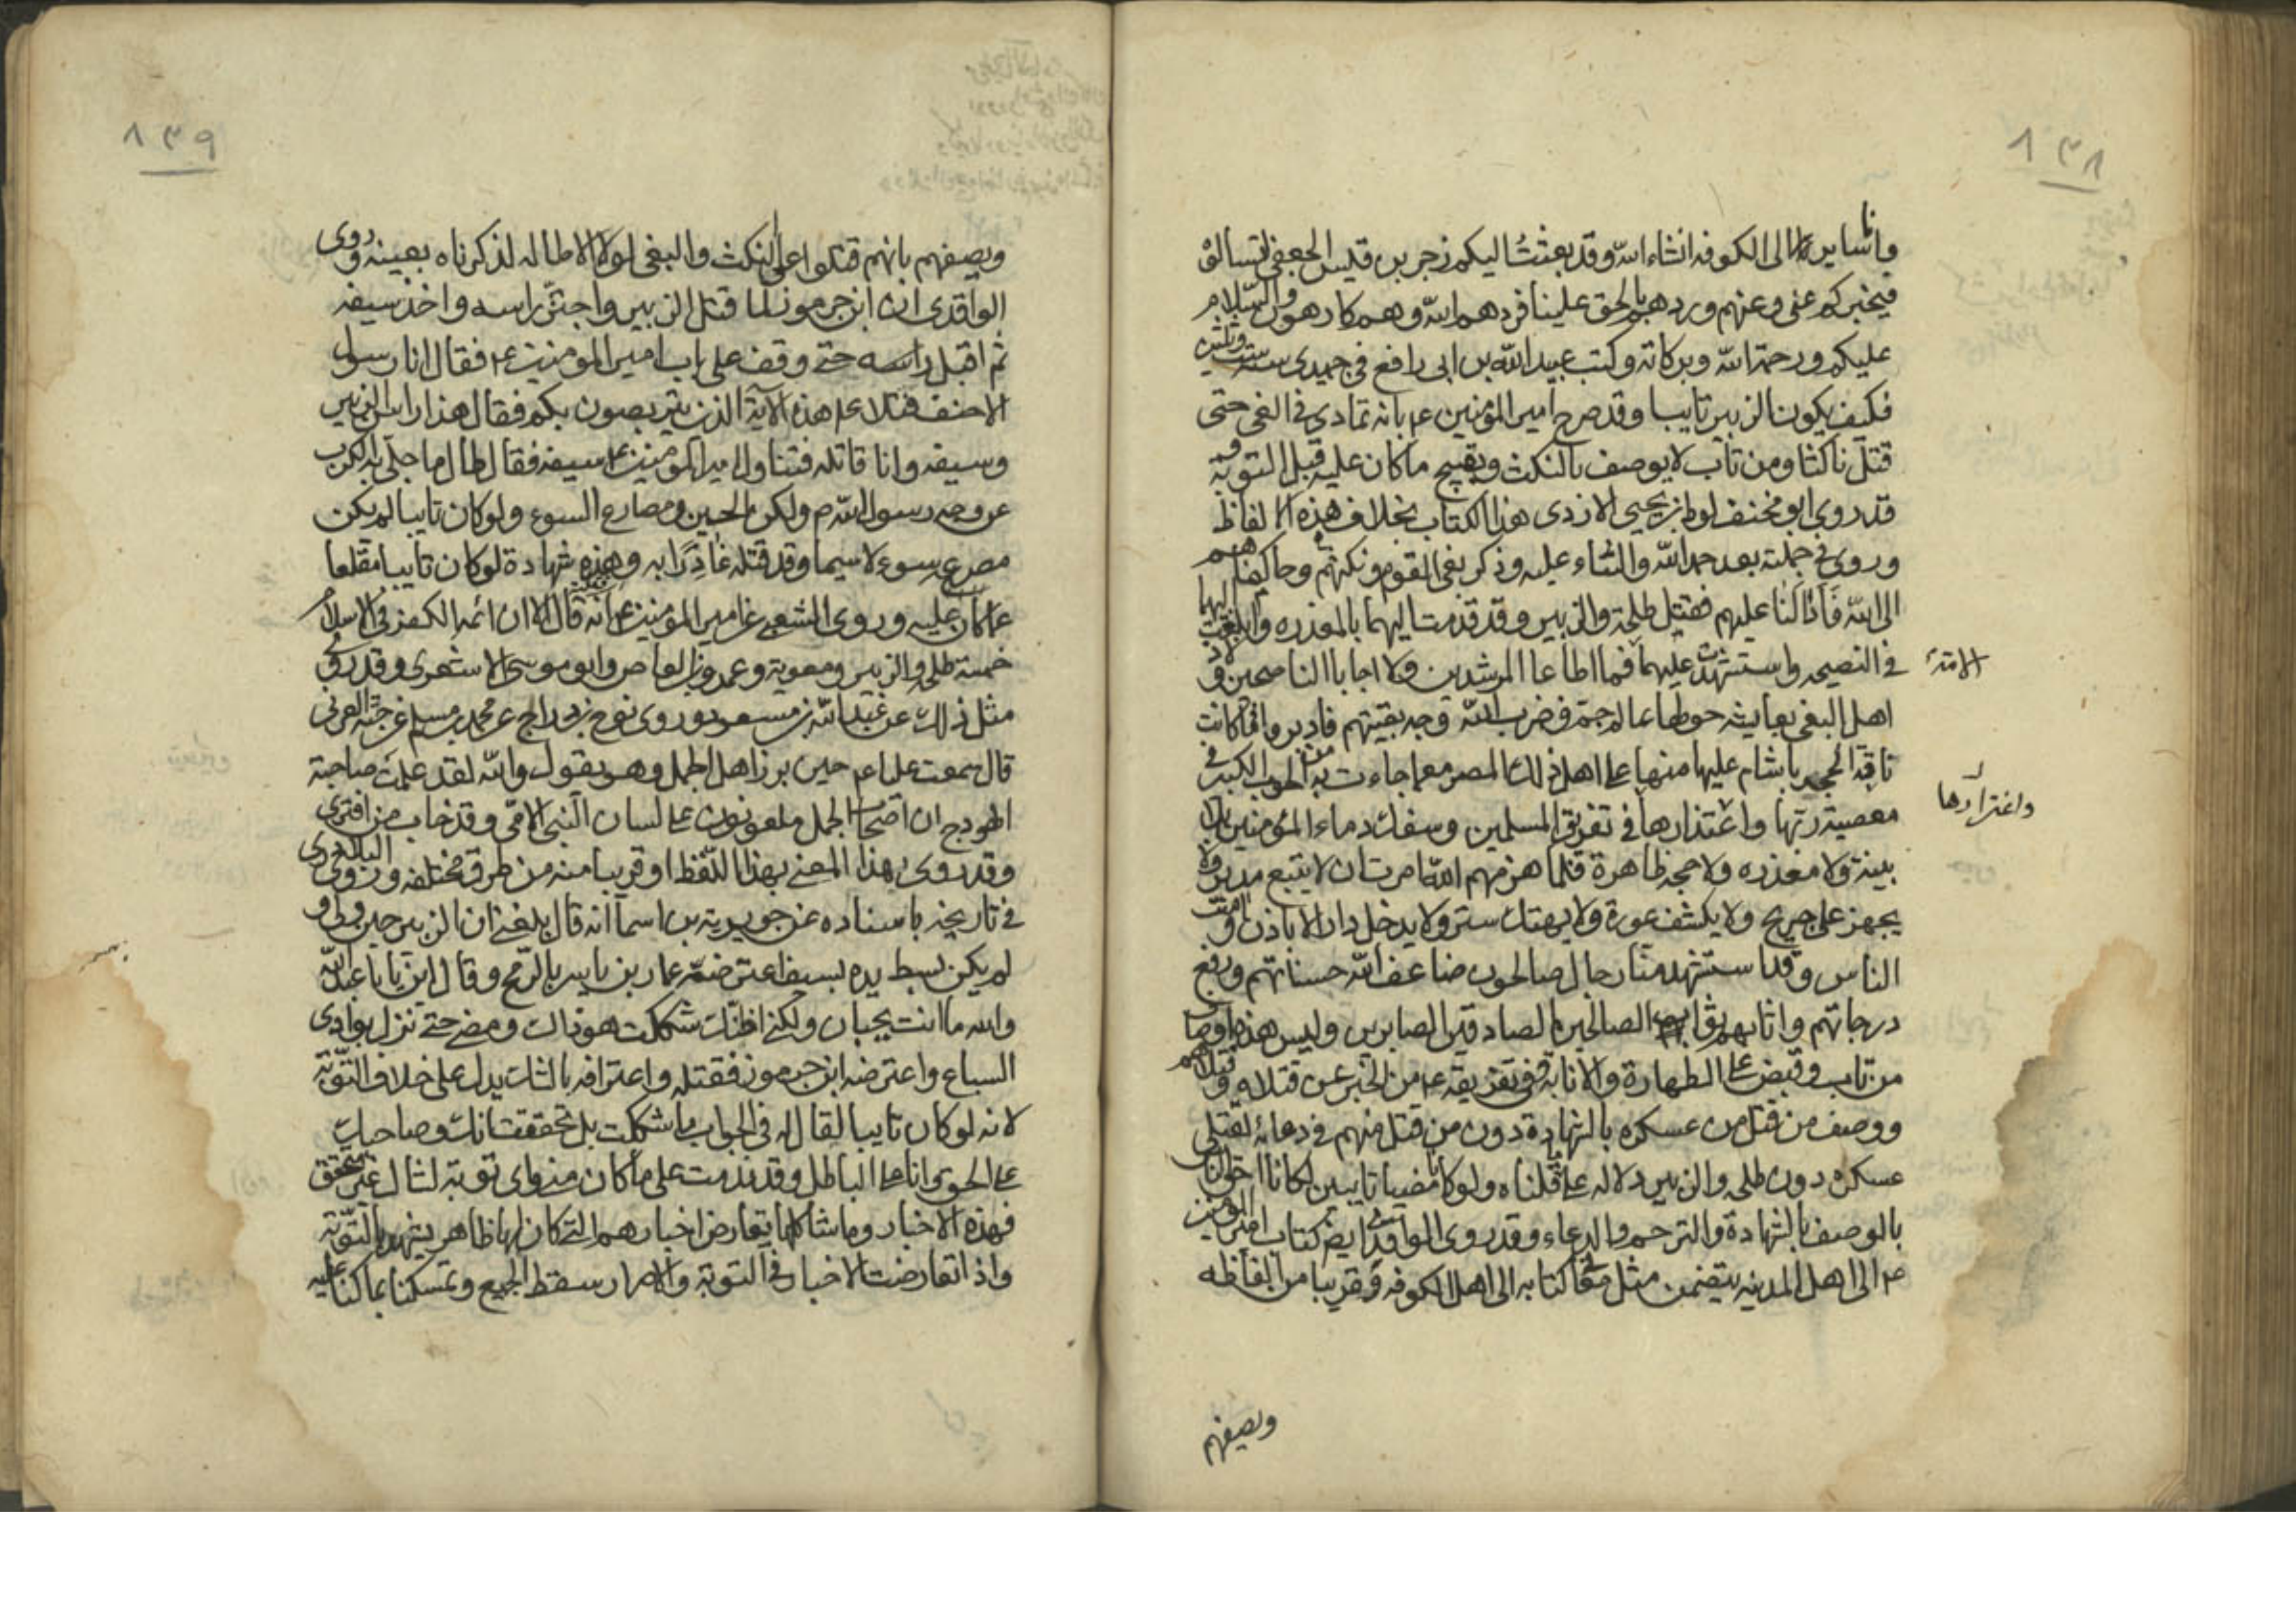 ٨٣٨
وانا ساير الى الكوفه انشاء الله وقد بعثتُ اليكم زجر بن قيس الجعفى لتسألوه
فيخبركم عنى وعنهم وردهم الحق علينا فردهم الله وهم كارهون والسلام
عليكم ورحمة الله وبركاته وكتب عبيد الله بن ابى رافع فى جميدى سنة ست وثلثين
فكيف يكون الزبير تايبا وقد صرح امير المؤمنين ع بانه تمادى فى الغى حتى
قتل ناكثا ومن تاب لا يوصف بالنكث ويقبح ما كان عليه قبل التوبة و
قد روى ابو مخنف لوط بن يحيى الازدى هذا الكتاب بخلاف هذه الالفاظ
وروى فى جملته بعد حمد الله والثناء عليه وذكر بغى القوم ونكثهم وحاكمناهم
الى الله فادالنا عليهم فقتل طلحة والزبير وقد قدمت اليهما بالمعذره وابلغت اليهما
فى النصيحه واستشهدت عليهما فما اطاعا المرشدين ولا اجابا الناصحين ولاذ
الامة
اهل البغى بعايشه فقتل حولها عالم جمة فضرب الله وجه بقيتهم فادبروا فما كانت
ناقة الحجر باشام عليها منها على اهل ذلك المصر مع ما جاءت به من الحوب الكبير فى
معصية ربها واعتذارها فى تفريق المسلمين وسفك دماء المؤمنين بلا
واغترارها
بينة ولا معذره ولا حجه ظاهرة فلما هزمهم الله امرت ان لا يتبع مدبر ولا
يجهز على جريح ولا يكشف عورة ولا يهتك ستر ولا يدخل دار الا باذن وامنت
الناس وقد استشهد منا رجال صالحون ضاعف الله حسناتهم ورفع
درجاتهم واثابهم ثواب الصالحين الصادقين الصابرين وليس هذه اوصا
من تاب وقبض على الطهارة والانابة ففى تفريقه ع من الخبر عن قتلاه وقتلاهم
ووصف من قتل من عسكره بالشهادة دون من قتل منهم فى دعائه لقتلى
عسكره دون طلحه والزبير دلاله على ما قلناه ولو كانا مضيا تايبين لكانا احق الناس
بالوصف بالشهادة والترحم والدعاء وقد روى الواقدى ايضا كتاب امير المؤمنين
ع الى اهل المدينه يتضمن مثل معنى كتابه الى اهل الكوفه وقريبا من الفاظه
ويصفهم
٨٣٩
ويصفهم بانهم قتلوا على النكث والبغى لولا الاطاله لذكرناه بعينه وروى
الواقدى ان ابن جرموز لما قتل الزبير واجتز راسه واخذ سيفه
ثم اقبل براسه حتى وقف على باب امير المؤمنين ع فقال انا رسول
الاحنف فتلا ع هذه الآية الذين يتربصون بكم فقال هذا راس الزبير
وسيفه وانا قاتله فتناول امير المؤمنين ع سيفه فقال طال ما جلى به الكرب
عن وجه رسول الله ص ولكن الحين ومصارع السوء ولو كان تايبا لم يكن
مصرعه سوء لا سيما وقد قتله غادرا به وهذه شهادة لو كان تايبا مقلعا
عما كان عليه وروى الشعبى عن امير المؤمنين ع انه قال الا ان ائمة الكفر فى الاسلام
خمسة طلحه والزبير ومعوية وعمرو بن العاص وابو موسى الاشعرى وقد روى
مثل ذلك عن عبد الله بن مسعود وروى نوح بن دراج عن محمد بن مسلم عن حبة العرنى
قال سمعت عليا ع حين برز اهل الجمل وهو يقول والله لقد علمت صاحبة
الهودج ان اصحاب الجمل ملعونون على لسان النبى الامى وقد خاب من افترى
وقد روى هذا المعنى بهذا اللفظ او قريبا منه من طرق مختلفه وروى البلاذرى
فى تاريخه باسناده عن جويرية بن اسما انه قال بلغنى ان الزبير حين ولى و
لم يكن بسط يده بسيف اعترضه عمار بن ياسر بالرمح وقال اين يابا عبد الله
والله ما انت بجبان ولكنى اظنك شككت هو ذاك ومضى حتى نزل بوادى
السباع واعترضه ابن جرموز فقتله واعترافه بالشك يدل على خلاف التوبة
لانه لو كان تايبا لقال له فى الجواب ما شككت بل تحققت انك وصاحبك
على الحق وانا على الباطل وقد ندمت على ما كان منى واى توبة لشاك غير متحقق
فهذه الاخبار وما شاكلها يعارض اخبارهم التى كان لها ظاهر يشهد بالتوبة
واذا تعارضت الاخبار فى التوبة والاصرار سقط الجميع وتمسكنا بما كنا عليه